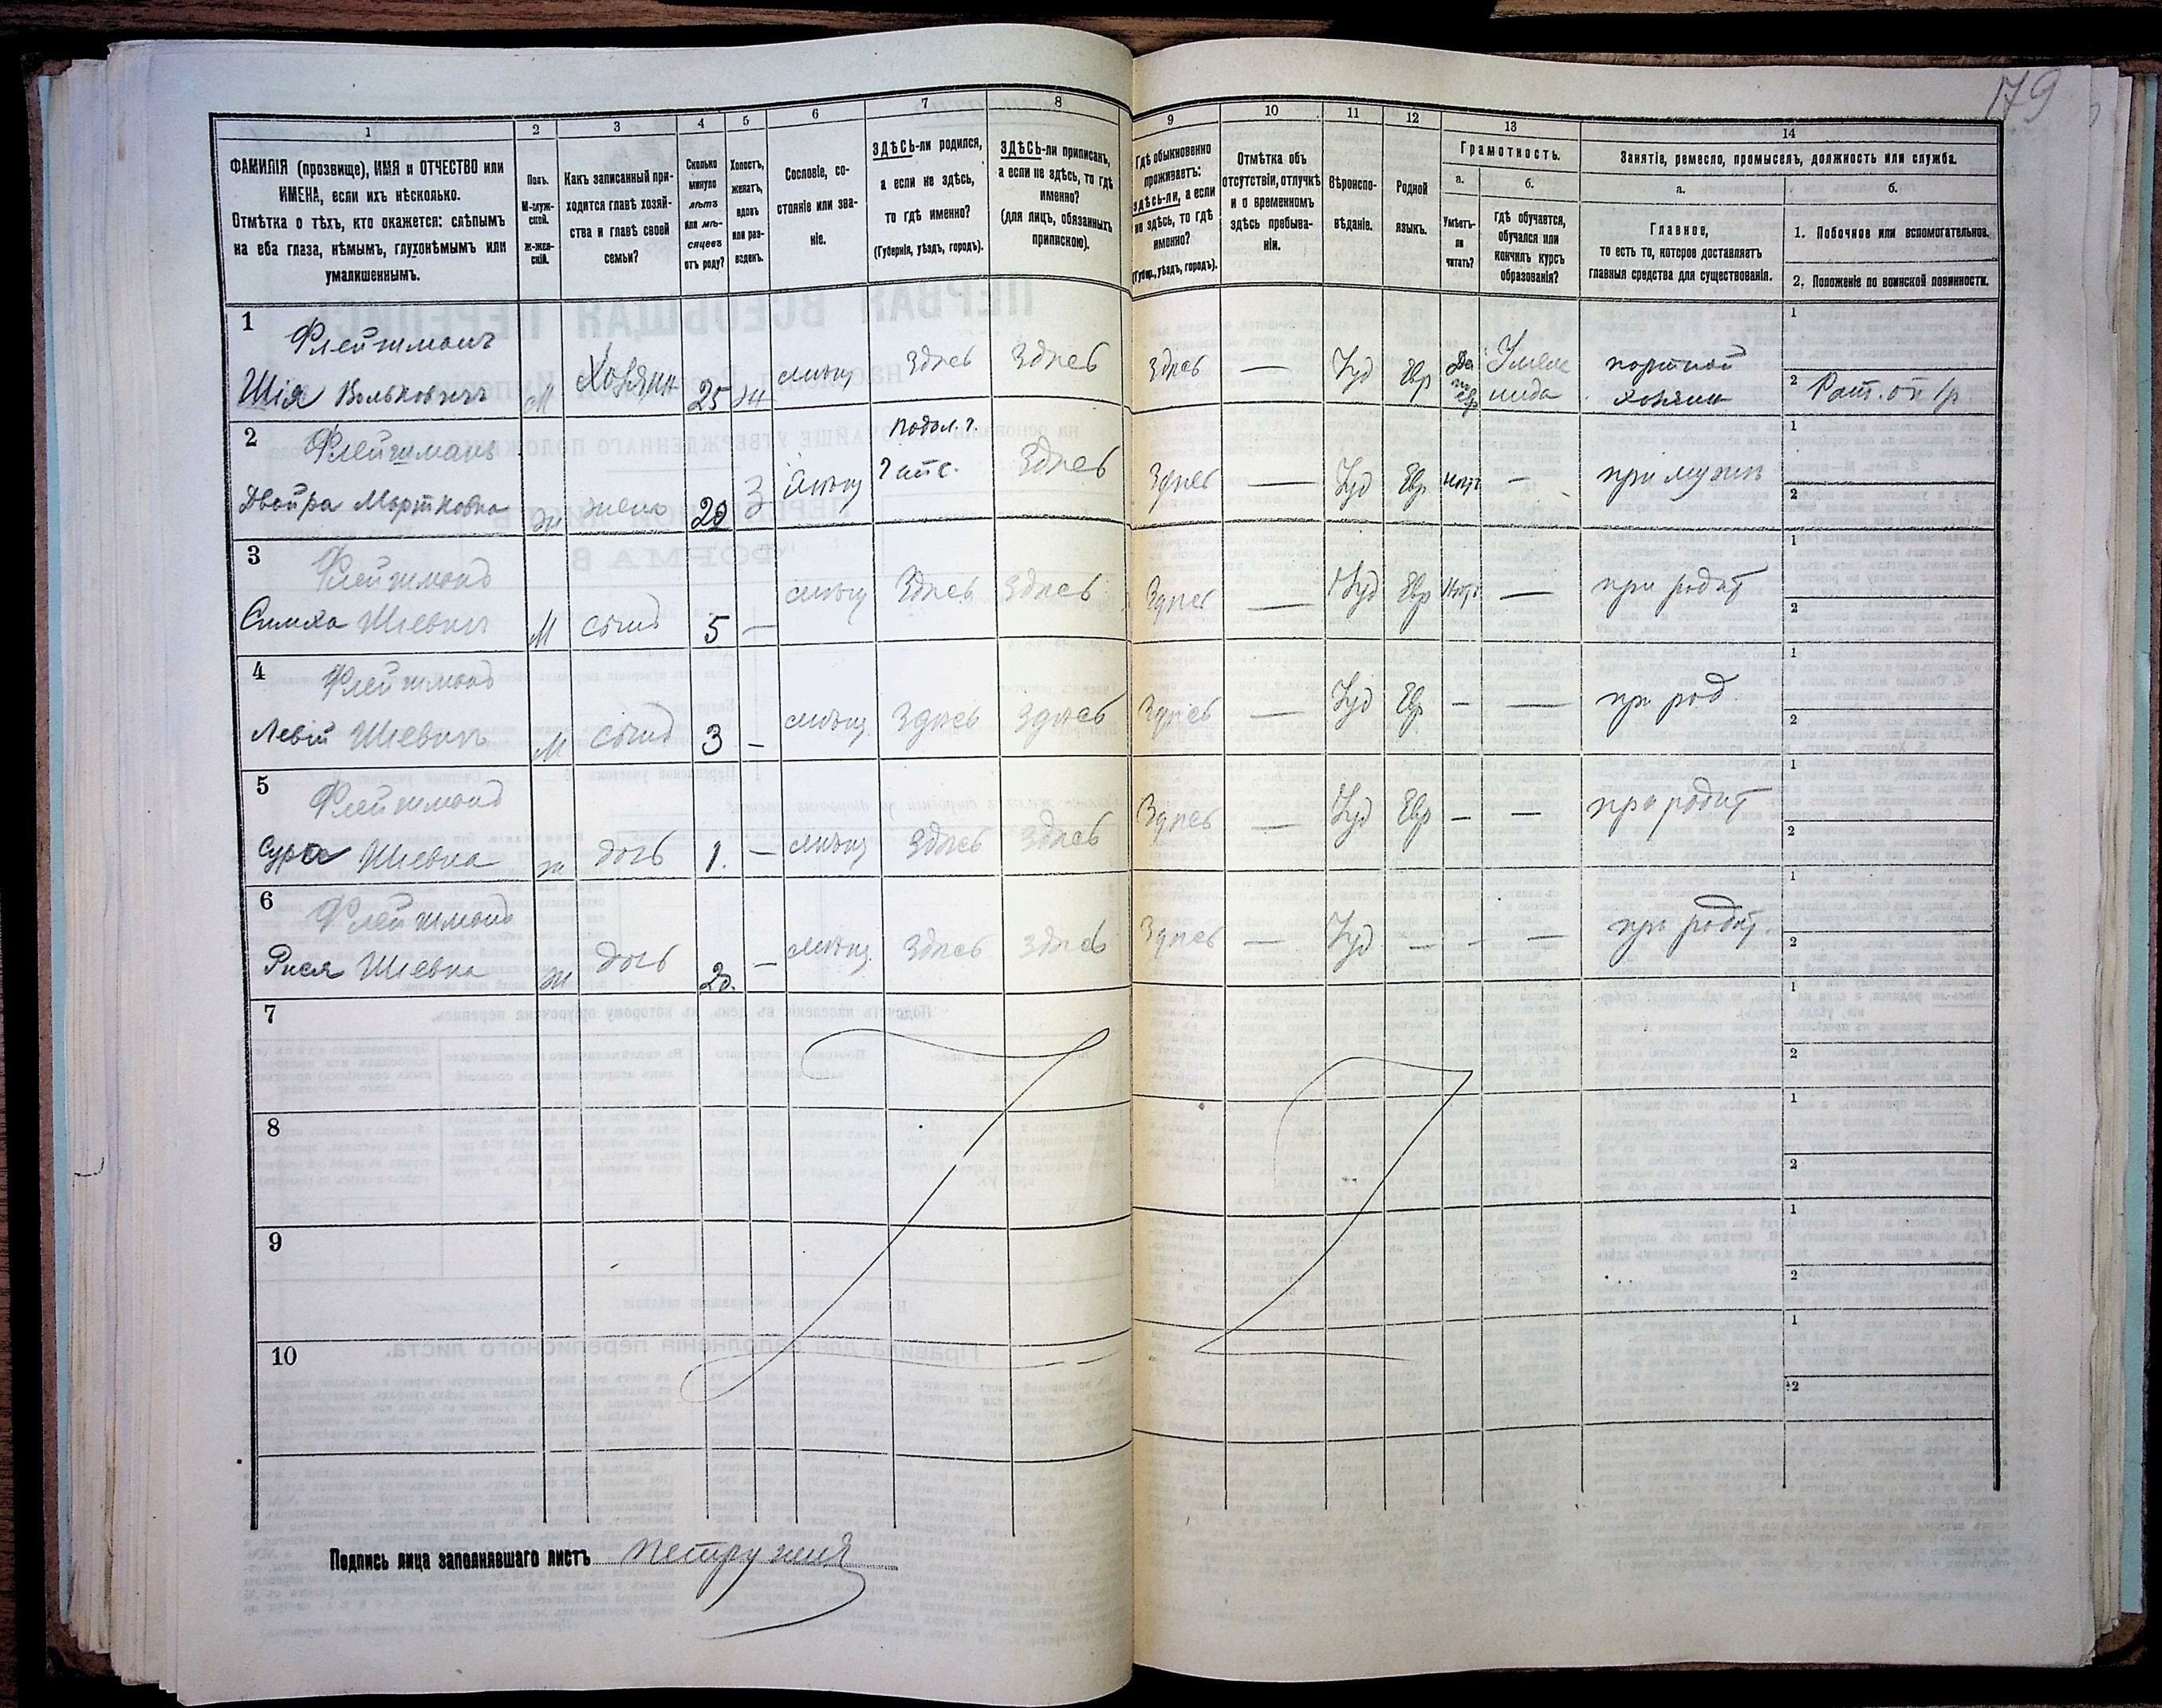 179
1 2 3 4 5 6 7 8 9 10 11 12 13 14
ФАМИЛІЯ (прозвище), ИМЯ и ОТЧЕСТВО или
ИМЕНА, если ихъ нѣсколько.
Отмѣтка о тѣхъ, кто окажется: слѣпымъ
на оба глаза, нѣмымъ, глухонѣмымъ или
умалишеннымъ.
Полъ.
М-муж-
ской.
Ж-жен-
скій.
Какъ записанный при-
ходится главѣ хозяй-
ства и главѣ своей
семьи?
Сколько
минуло
лѣтъ
или мѣ-
сяцевъ
отъ роду?
Холостъ,
женатъ,
вдовъ
или раз-
веденъ.
Сословіе, со-
стояніе или зва-
ніе.
ЗДѢСЬ-ли родился,
а если не здѣсь,
то гдѣ именно?
(Губернія, уѣздъ, городъ).
ЗДѢСЬ-ли приписанъ,
а если не здѣсь, то гдѣ
именно?
(для лицъ, обязанныхъ
припискою).
Гдѣ обыкновенно
проживаетъ:
здѣсь-ли, а если
не здѣсь, то гдѣ
именно?
(Губер., уѣздъ, городъ).
Отмѣтка объ
отсутствіи, отлучкѣ
и о временномъ
здѣсь пребыва-
ніи.
Вѣроиспо-
вѣданіе.
Родной
языкъ.
Грамотность.
а.
Умѣетъ-
ли
читать?
б.
гдѣ обучается,
обучался или
кончилъ курсъ
образованія?
Занятіе, ремесло, промыселъ, должность или служба.
а.
Главное,
то есть то, которое доставляетъ
главныя средства для существованія.
б.
1. Побочное или вспомогательное.
2. Положеніе по воинской повинности.
1 Флейшманъ
Шія Вольковичъ М Хозяин 25 ж мѣщ Здѣсь Здѣсь Здѣсь — Іуд Евр Да портной
хозяин
2 Флейшманъ Подол. г.
Двойра Мортковна ж жена 20 З мѣщ Здѣсь Здѣсь — Іуд Евр нѣтъ — при мужѣ
3 Флейшманъ
Симха Шіевичъ М сынъ 5 — мѣщ Здѣсь Здѣсь Здѣсь — Іуд Евр нѣтъ — при родит
4 Флейшманъ
Левій Шіевичъ М сынъ 3 — мѣщ Здѣсь Здѣсь Здѣсь — Іуд Евр — — при род
5 Флейшманъ
Сура Шіевна ж дочь 1. — мѣщ Здѣсь Здѣсь Здѣсь — Іуд Евр — — при родит
6 Флейшманъ
Рися Шіевна ж дочь — мѣщ Здѣсь Здѣсь Здѣсь — Іуд — — — при родит.
7
8
9
10
Подпись лица заполнявшаго листъ